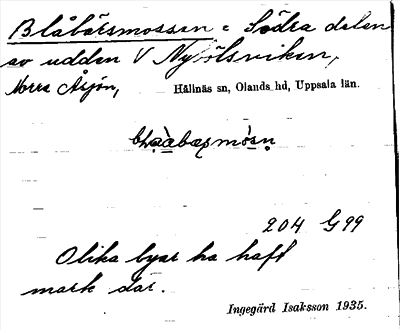 Blåbärsmossen = Södra delen
av udden V Nybölsviken,
Norra Åsjön, Hållnäs sn, Olands hd, Uppsala län.
204 G99
Olika byar ha haft
mark där.
Ingegärd Isaksson 1935.